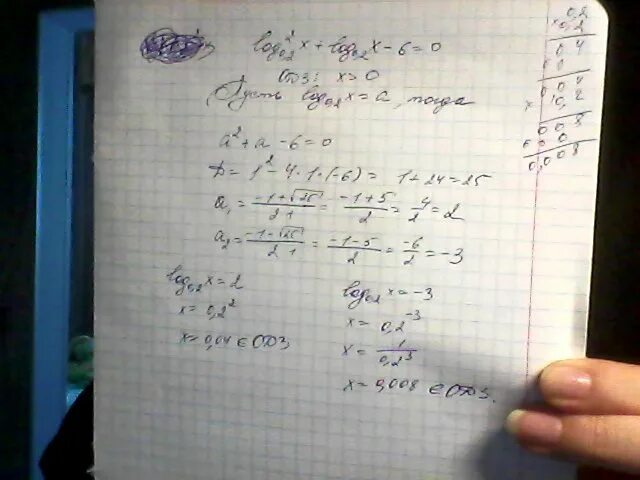 log²₀,₂x + log₀,₂x - 6 = 0
ОДЗ: x = 0
Пусть log₀,₂x = a, тогда
a² + a - 6 = 0
D = 1² - 4 · 1 · (-6) = 1 + 24 = 25
a₁ = (-1+√25)/(2·1) = (-1+5)/2 = 4/2 = 2
a₂ = (-1-√25)/(2·1) = (-1-5)/2 = -6/2 = -3
log₀,₂x = 2
x = 0,2²
x = 0,04 ∈ ОДЗ
log₀,₂x = -3
x = 0,2⁻³
x = 1/0,2³
x = 0,008 ∈ ОДЗ.
0,2
x 0,2
0 4
0 0
0 0 4
x 0,2
0 0 8
0 0 0
0,008